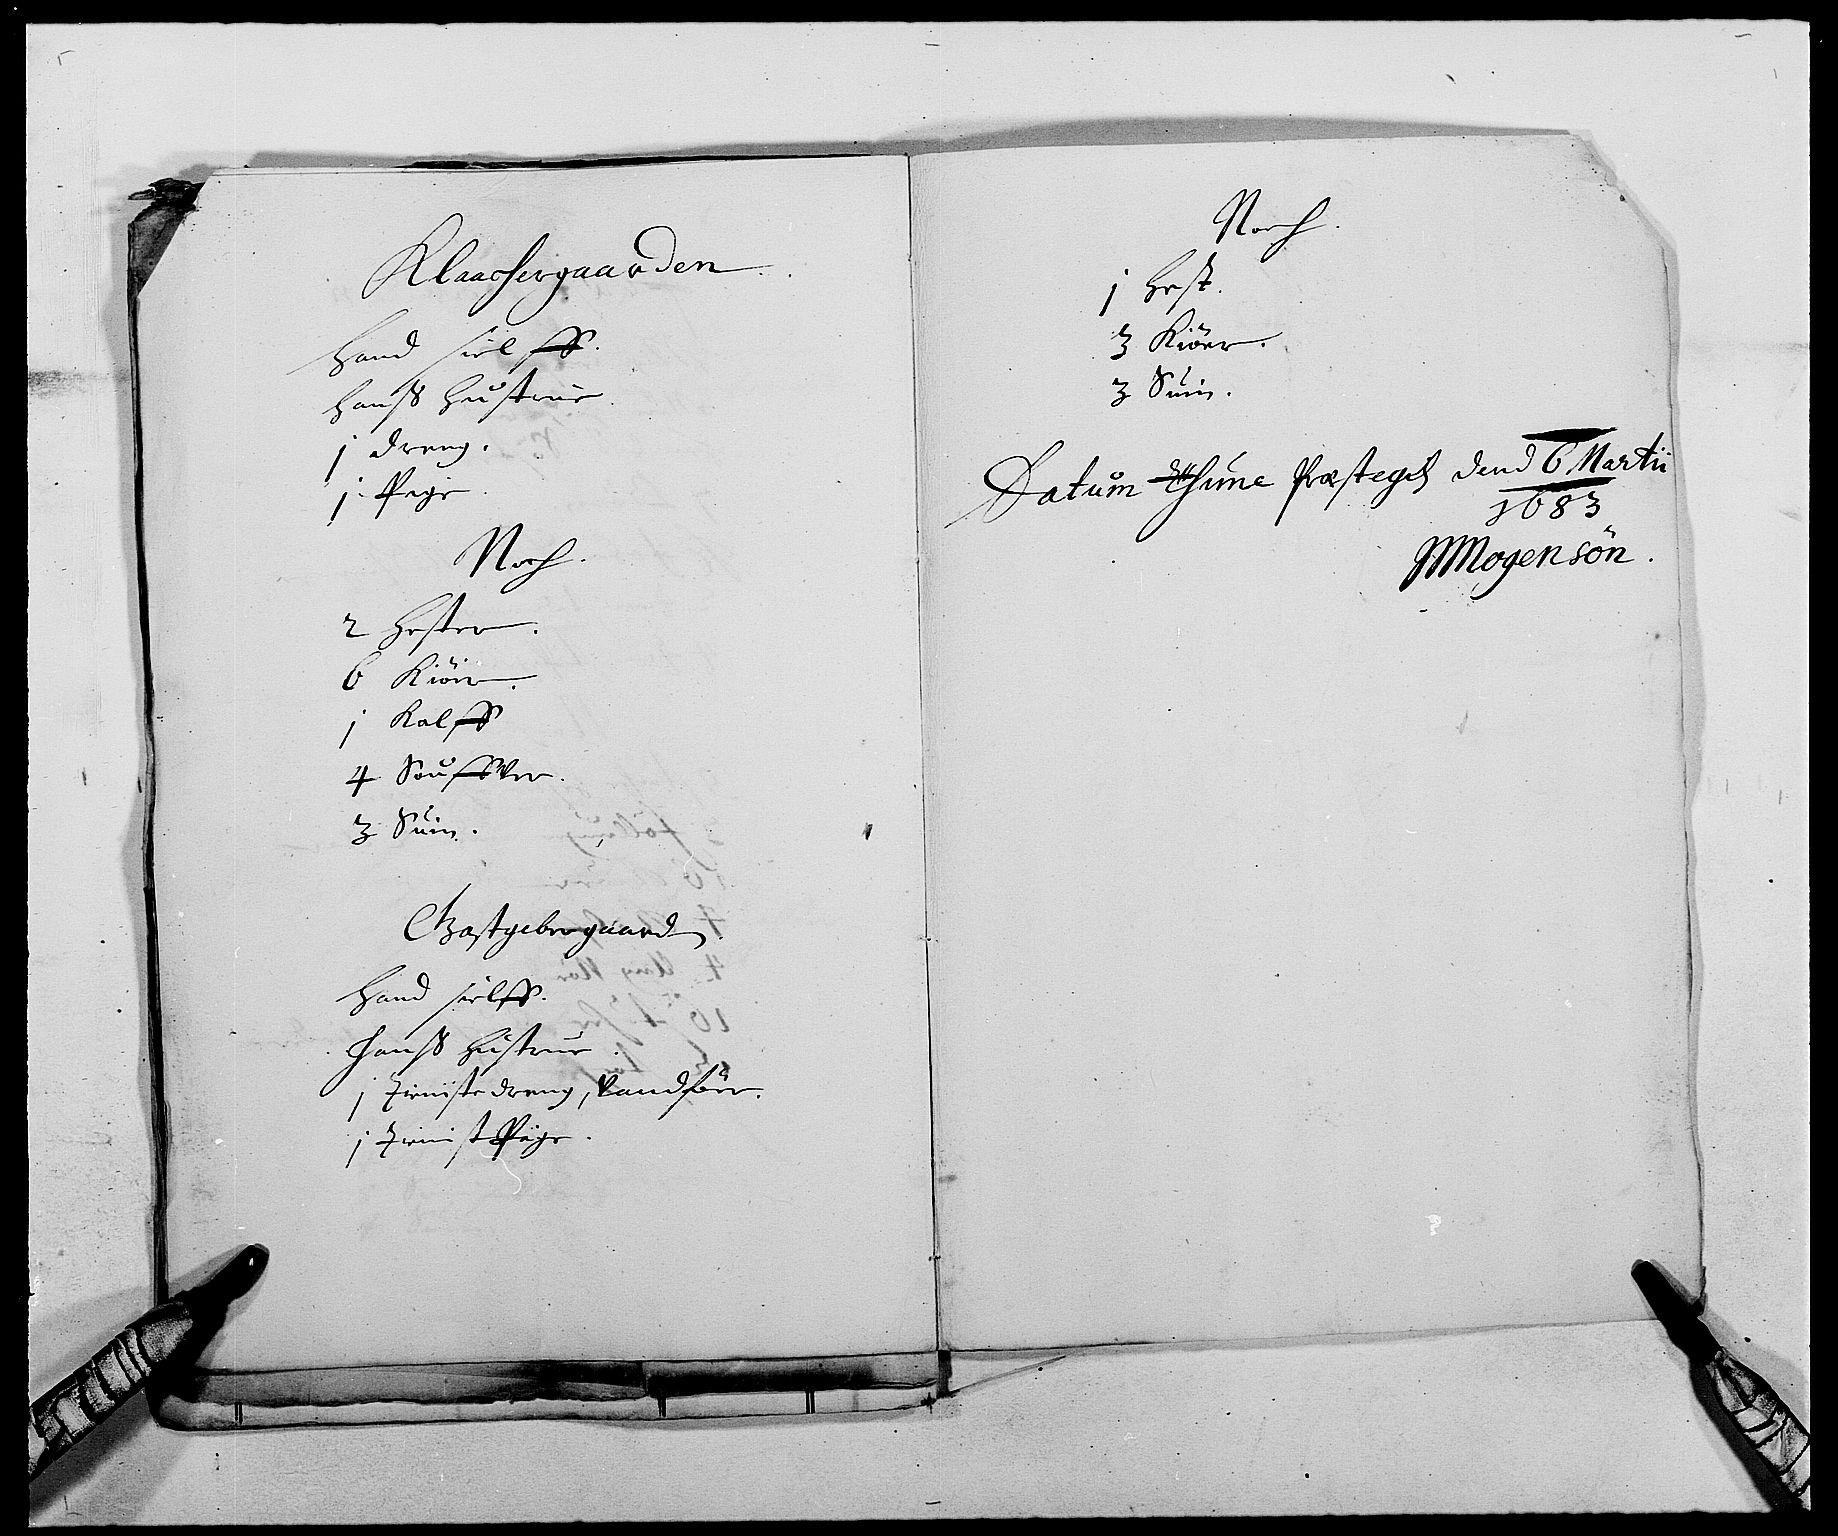 Klaachergaarden
Hand sielff.
Hanss Hustrue
1 dreng.
1 Pige.
Noch.
2 Hester.
6 Kiör.
1 Kalff
4 Souffver.
3 Suin.
Giæstgebergaard
Hand sielff.
Hanss Hustrue.
1 tieniste dreng, Vandför.
1 tienist Pige.
Noch.
1 Hest.
3 Kiöer.
3 Suin.
Datum Thune Præstegd dend 6 Martii
1683
Mogensön.